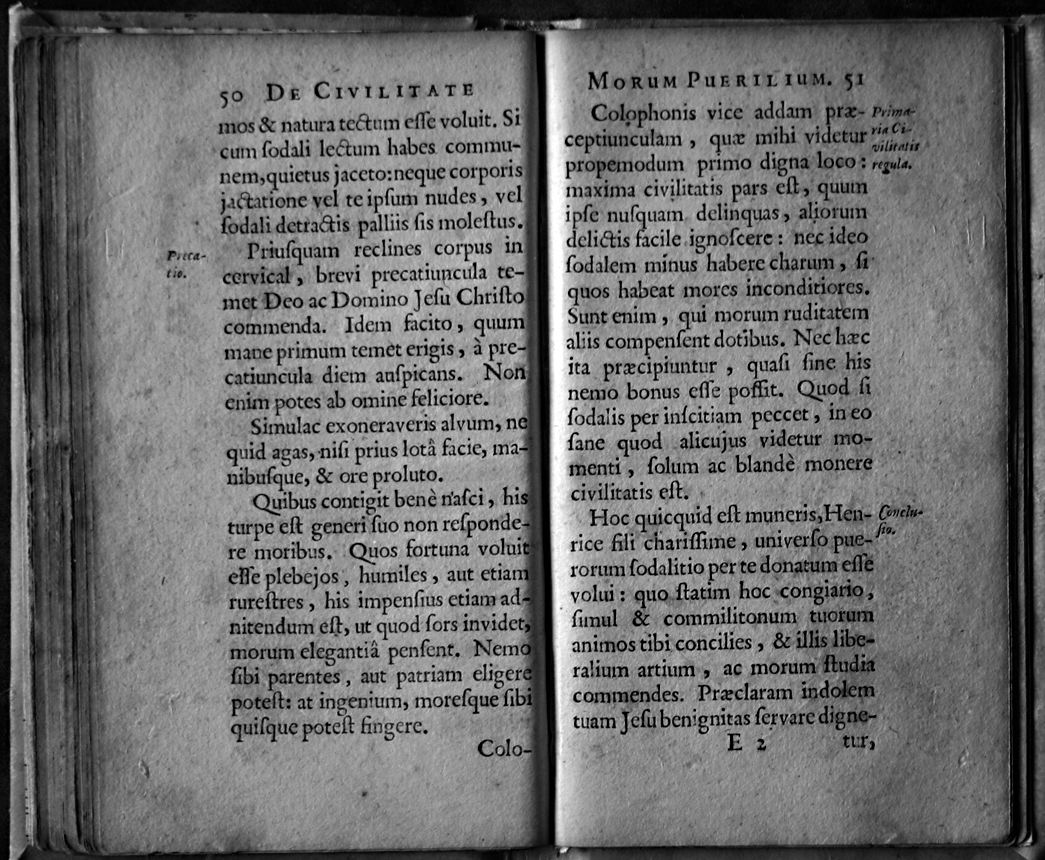 50 DE CIVILITATE
mos & natura tectum eſſe voluit. Si
cum ſodali lectum habes commu-
nem, quietus jaceto: neque corporis
jactatione vel te ipſum nudes, vel
ſodali detractis palliis ſis moleſtus.
Preca-
tio.
Priuſquam reclines corpus in
cervical, brevi precatiuncula te-
met Deo ac Domino Jeſu Chriſto
commenda. Idem facito, quum
mane primum temet erigis, à pre-
catiuncula diem auſpicans. Non
enim potes ab omine feliciore.
Simulac exoneraveris alvum, ne
quid agas, niſi prius lotâ facie, ma-
nibuſque, & ore proluto.
Quibus contigit benè naſci, his
turpe eſt generi ſuo non reſponde-
re moribus. Quos fortuna voluit
eſſe plebejos, humiles, aut etiam
rureſtres, his impenſius etiam ad-
nitendum eſt, ut quod ſors invidet,
morum elegantiâ penſent. Nemo
ſibi parentes, aut patriam eligere
poteſt: at ingenium, moreſque ſibi
quiſque poteſt fingere.
Colo-
MORUM PUERILIUM. 51
Colophonis vice addam præ-
ceptiunculam, quæ mihi videtur
propemodum primo digna loco:
maxima civilitatis pars eſt, quum
ipſe nuſquam delinquas, aliorum
delictis facile ignoſcere: nec ideo
ſodalem minus habere charum, ſi
quos habeat mores inconditiores.
Sunt enim, qui morum ruditatem
aliis compenſent dotibus. Nec hæc
ita præcipiuntur, quaſi ſine his
nemo bonus eſſe poſſit. Quod ſi
ſodalis per inſcitiam peccet, in eo
ſane quod alicujus videtur mo-
menti, ſolum ac blandè monere
civilitatis eſt.
Prima-
ria Ci-
vilitatis
regula.
Hoc quicquid eſt muneris, Hen-
rice fili chariſſime, univerſo pue-
rorum ſodalitio per te donatum eſſe
volui: quo ſtatim hoc congiario,
ſimul & commilitonum tuorum
animos tibi concilies, & illis libe-
ralium artium, ac morum ſtudia
commendes. Præclaram indolem
tuam Jeſu benignitas ſervare digne-
Conclu-
ſio.
E 2 tur,